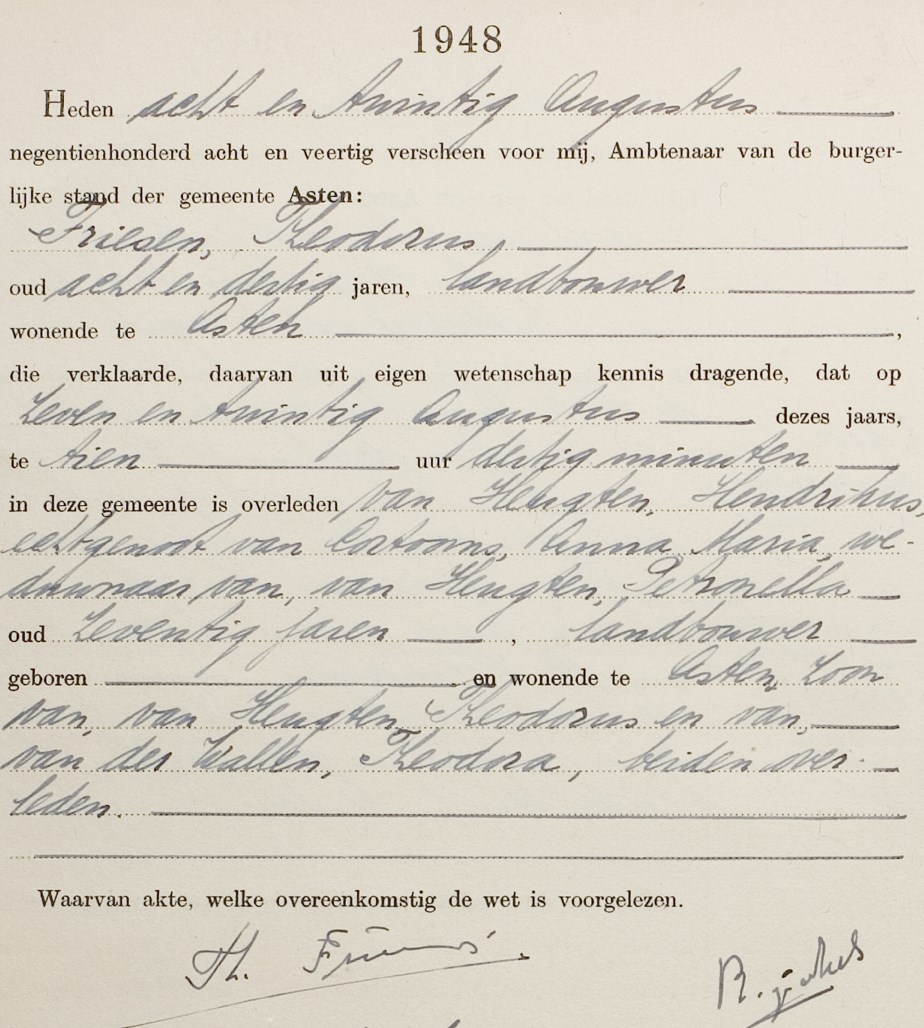 1948
Heden acht en twintig Augustus
negentienhonderd acht en veertig verscheen voor mij, Ambtenaar van de burger-
lijke stand der gemeente Asten:
Friesen, Theodorus,
oud acht en dertig jaren, landbouwer
wonende te Asten ,
die verklaarde, daarvan uit eigen wetenschap kennis dragende, dat op
zeven en twintig Augustus dezes jaars,
te tien uur dertig minuten
in deze gemeente is overleden van Heugten, Hendrikus,
echtgenoot van Cortooms, Anna Maria, we-
duwnaar van, van Heugten, Petronella
oud zeventig jaren , landbouwer
geboren en wonende te Asten, zoon
van, van Heugten, Theodorus en van,
van der Wallen, Theodora, beiden over-
leden.
Waarvan akte, welke overeenkomstig de wet is voorgelezen.
Th.